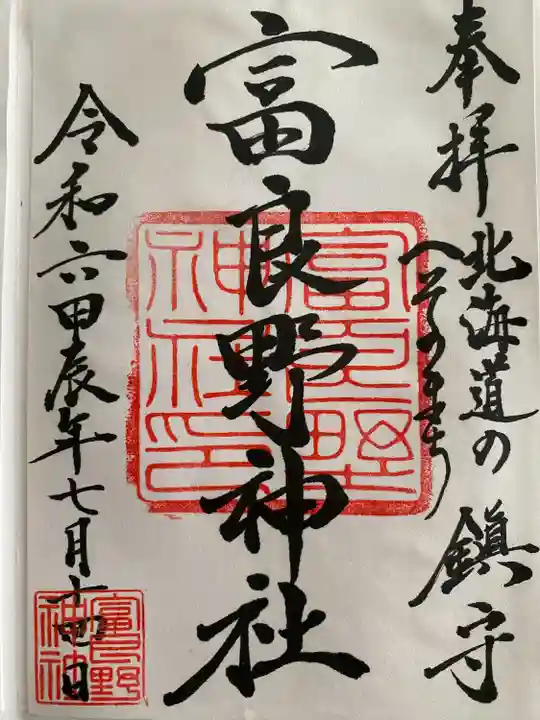 奉拝 北海道の鎮守
へそのまち
富良野神社
富良野神社印
令和六甲辰年七月十四日
富良野神社